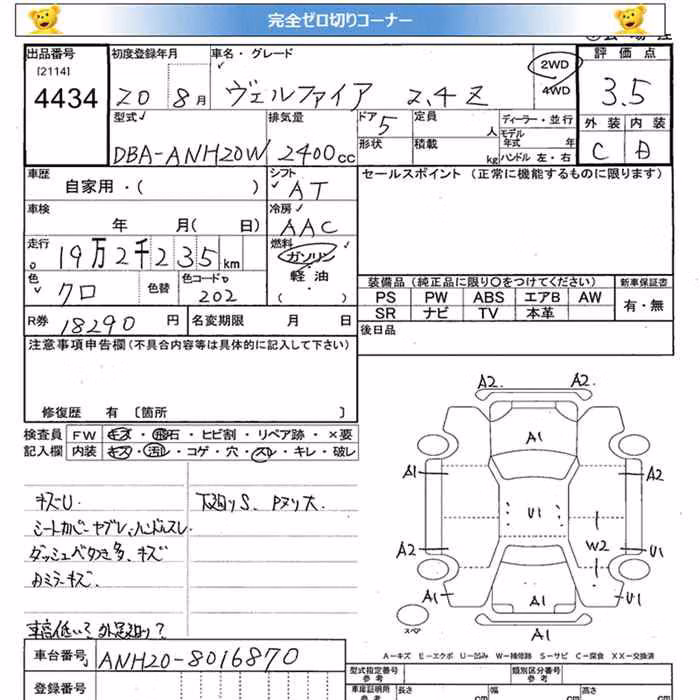 完全ゼロ切りコーナー
出品番号 初度登録年月 車名・グレード 2WD 評価点
[2114]
4434 20 8月 ヴェルファイア 2.4Z 4WD 3.5
型式 排気量 ドア 5 定員 人 ディーラー・並行 外装 内装
DBA-ANH20W 2400cc 形状 積載 kg モデル年式 年 C D
ハンドル 左・右
車歴 シフト セールスポイント (正常に機能するものに限ります)
自家用・( ) AT
車検 冷房
年 月( 日) AAC
走行 燃料
19万2千235km ガソリン
色 色替 色コード 軽油
クロ 202 ( )
装備品 (純正品に限り〇をつけてください) 新車保証書
PS PW ABS エアB AW 有・無
SR ナビ TV 本革
R券 18290円 名変期限 月 日 後日品
注意事項申告欄(不具合内容等は具体的に記入して下さい)
修復歴 有 〔箇所 〕
検査員 FW キズ・飛石・ヒビ割・リペア跡・×要
記入欄 内装 キズ・汚レ・コゲ・穴・スレ・キレ・破レ
キズU. 下廻りS、Pヌリ大.
シートカバーヤブレ、ハンドルスレ
ダッシュベタつき多、キズ
カミラーキズ.
車高低い
A2 A2
A1
A1 A2
U1
A2 W2 U1
A1 A1 A1
スペア A1
A－キズ E－エクボ U－凹み W－補修跡 S－サビ C－腐食 XX－交換済
車台番号 ANH20-8016870
型式指定番号 参考 類別区分番号 参考
登録番号 車庫証明所 参考 長さ cm 幅 cm 高さ cm